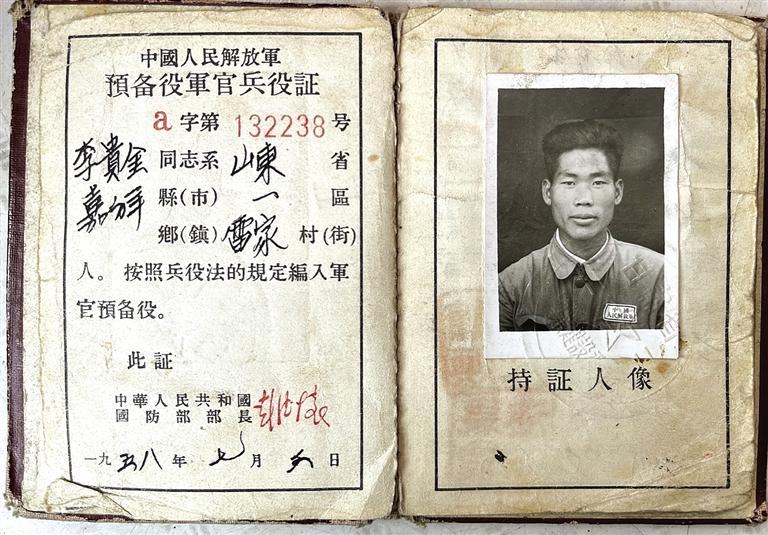 中國人民解放軍
預备役軍官兵役証
a字第 132238 号
李貴全 同志系 山東 省
嘉祥 縣(市) 一 區
鄉(鎮) 雷家 村(街)
人。按照兵役法的規定編入軍
官預备役。
此証
中華人民共和國
國防部部長 彭德懷
一九五八年 七月 日
中國
人民解放軍
持証人像